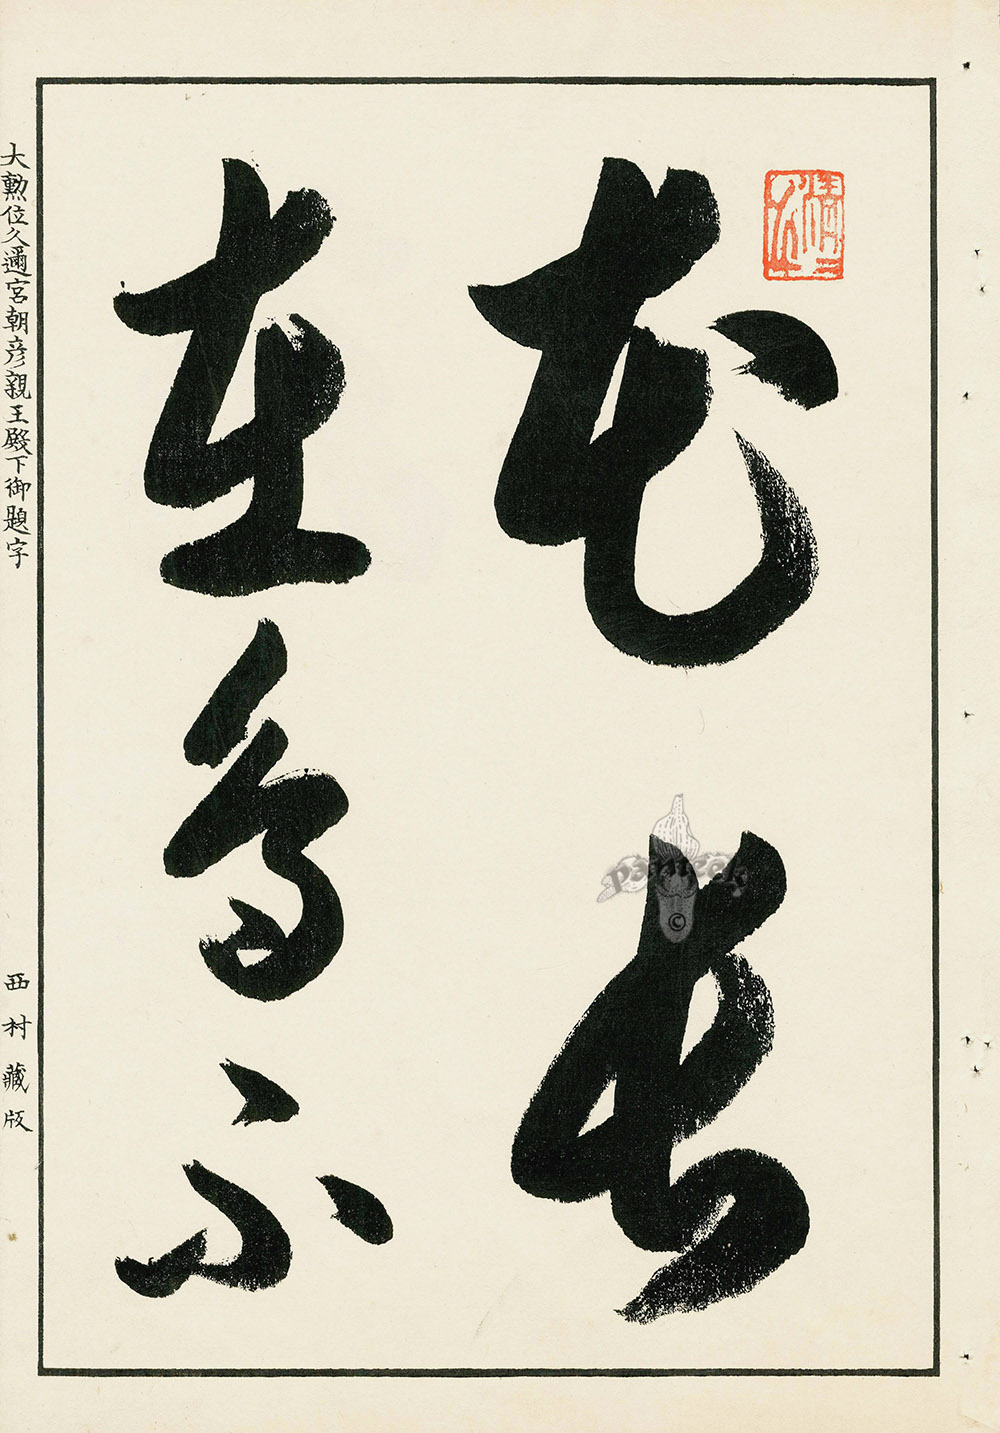 花長
在鳥不
大勲位久邇宮朝彦親王殿下御題字
西村藏版
panteek
©